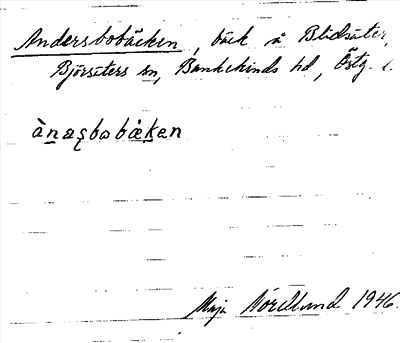 Andersbobäcken, bäck å Blidsäter,
Björsäters sn, Bankekinds hd, Östg. l.
ànaʂbobækən
Maja Nordlund 1946.